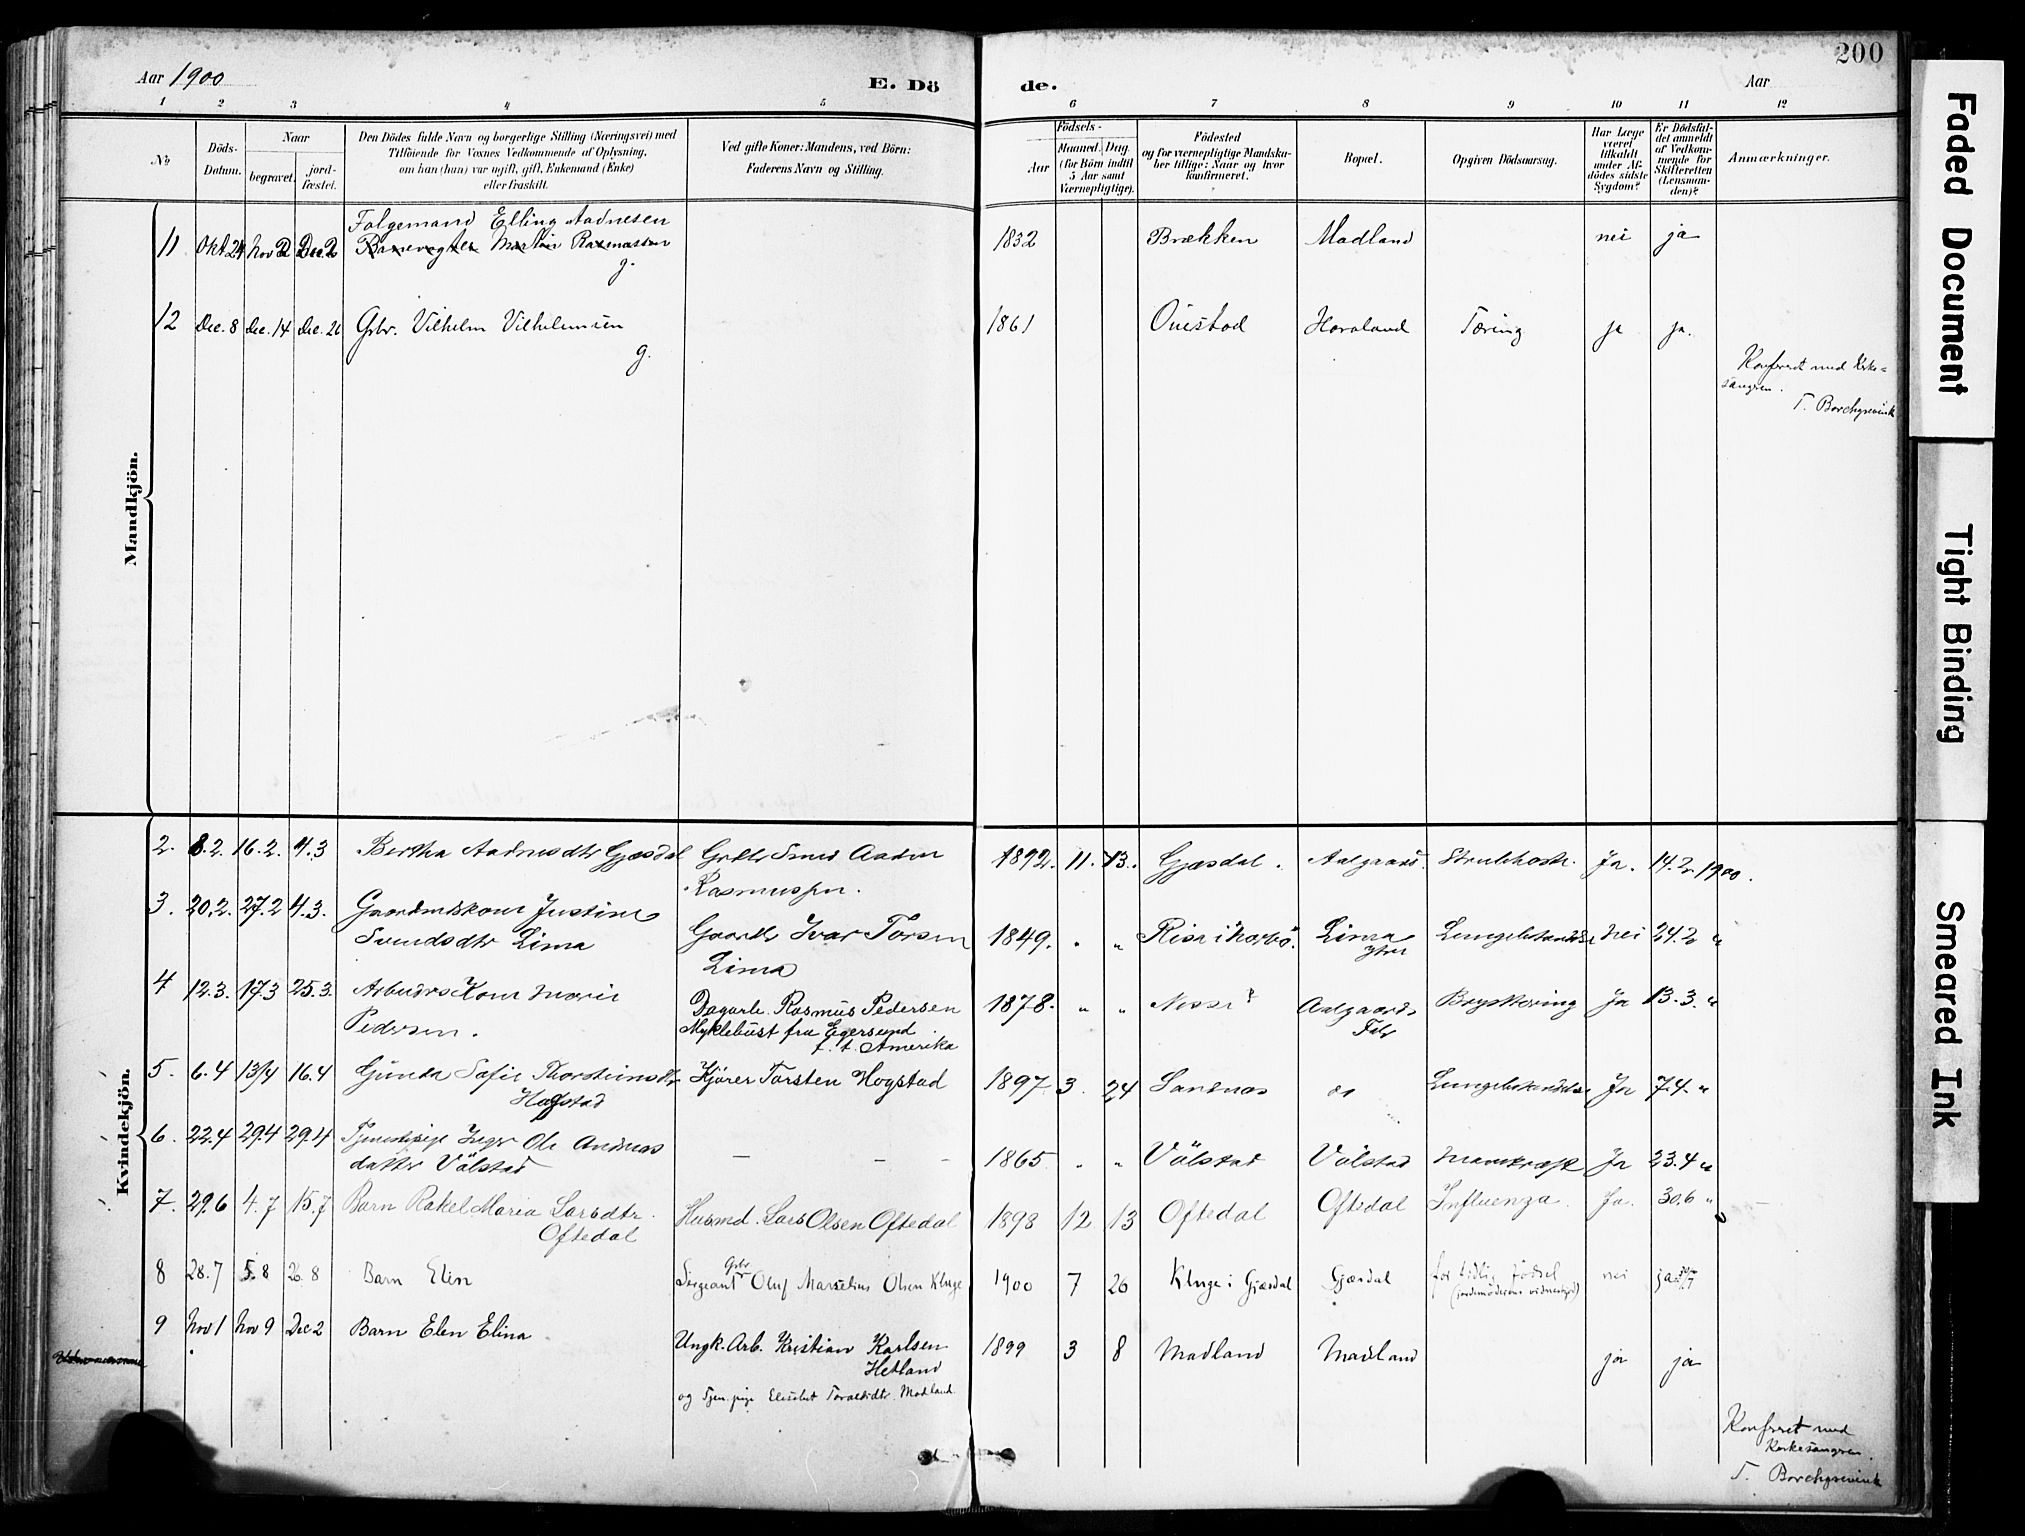 200
Aar 1900
E. Dö
de.
Aar
1 2 3 4 5 6 7 8 9 10 11 12
No
Döds-
Datum.
Naar
begravet.
jord-
fæstet.
Den Dödes fulde Navn og borgerlige Stilling (Næringsvei) med
Tilföiende for Voxnes Vedkommende af Oplysning,
om han (hun) var ugift, gift, Enkemand (Enke)
eller fraskilt.
Ved gifte Koner: Mandens, ved Börn:
Faderens Navn og Stilling.
Födsels-
Aar
Maaned.
Dag.
(for Börn indtil
5 Aar samt
Værnepligtige).
Födested
og for værnepligtige Mandska-
ber tillige: Naar og hvor
konfirmeret.
Bopæl.
Opgiven Dödsaarsag.
Har Læge
været
tilkaldt
under Af-
dödes sidste
Sygdom?
Er Dödsfal-
det anmeldt
af Vedkom-
mende for
Skifteretten
(Lensman-
den)?
Anmærkninger.
Mandkjön.
Folgemand Elling Aadnesen
11 Okt 24 Nov 2 Dec 2 Banevogter Martin Rasmussen 1832 Brækken Madland nei ja
g.
12 Dec. 8 Dec. 14 Dec. 26 Grbr. Vilhelm Vilhelmsen 1861 Ouestad Haraland Tæring ja ja.
g.
Konferert med Kirke-
sangeren.
T. Borchgrevink
Kvindekjön.
2. 8.2. 16.2. 4.3 Bertha Aadnesdtr Gjesdal Grbr Smed Aaden 1892. 11. 13. Gjesdal. Aalgaard. Strubehoste. Ja. 14.2.1900.
Rasmussen.
3. 20.2. 27.2 4.3. Gaardmdskone Justine
Svendsdtr Lima Gaardbr Ivar Torsen 1849. " " Risa i Haabö. Lima Lungebetændelse Nei 24.2 "
Lima ytre
4 12.3. 17.3 25.3. Arbeiders Kone Marie
Pedersen. Dagarb. Rasmus Pedersen 1878. " " Nesse? Aalgaards Brystkæring Ja 13.3. "
Myklebust fra Egersund Fabr
f. t. Amerika
5. 6.4 13/4 16.4 Gunda Sofie Thorsteinsdtr Kjörer Torsten Hogstad 1897 3. 24 Sandnes do Lungebetændelse Ja 7.4. "
Hogstad
6. 22.4 29.4 29.4 Tjenestepige Inger Ole Andreas
datter Völstad – – – 1865 " " Völstad Völstad Ja 23.4 "
7. 29.6 4.7 15.7 Barn Rakel Maria Larsdtr. Husmd. Lars Olsen Oftedal 1898 12 13 Oftedal Oftedal Influenza. Ja. 30.6 "
Oftedal
8 28.7 5.8 26.8 Barn Elen Grbr
Sergeant Oluf Marselius Olsen Kluge 1900 7 26 Kluge i Gjesdal Gjesdal for tidlig födsel nei ja
(jordemoderens vidnesbyrd)
9 Nov 1 Nov 9 Dec 2 Barn Elen Elina
Ungk. Arb. Kristian Karlsen 1899 3 8 Madland Madland ja ja
Hetland
og Tjen.pige Elisabet Toraldsdtr. Madland.
Konferert med
Kirkesangeren
T. Borchgrevink
Faded Document
Tight Binding
Smeared Ink